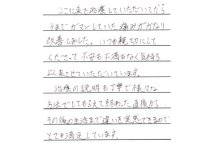 ここに来て治療していただいてから
今までガマンしていた痛みがかなり
改善しました。いつも親切にして
くださって不安も不満もなく気持ち
以来させていただいています。
治療の説明も丁寧で様々な
方法でしてもらえて終わった直後から
その後の生活まで違いを実感できるので
とても満足しています。